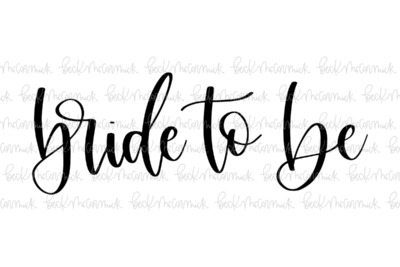 bride to be